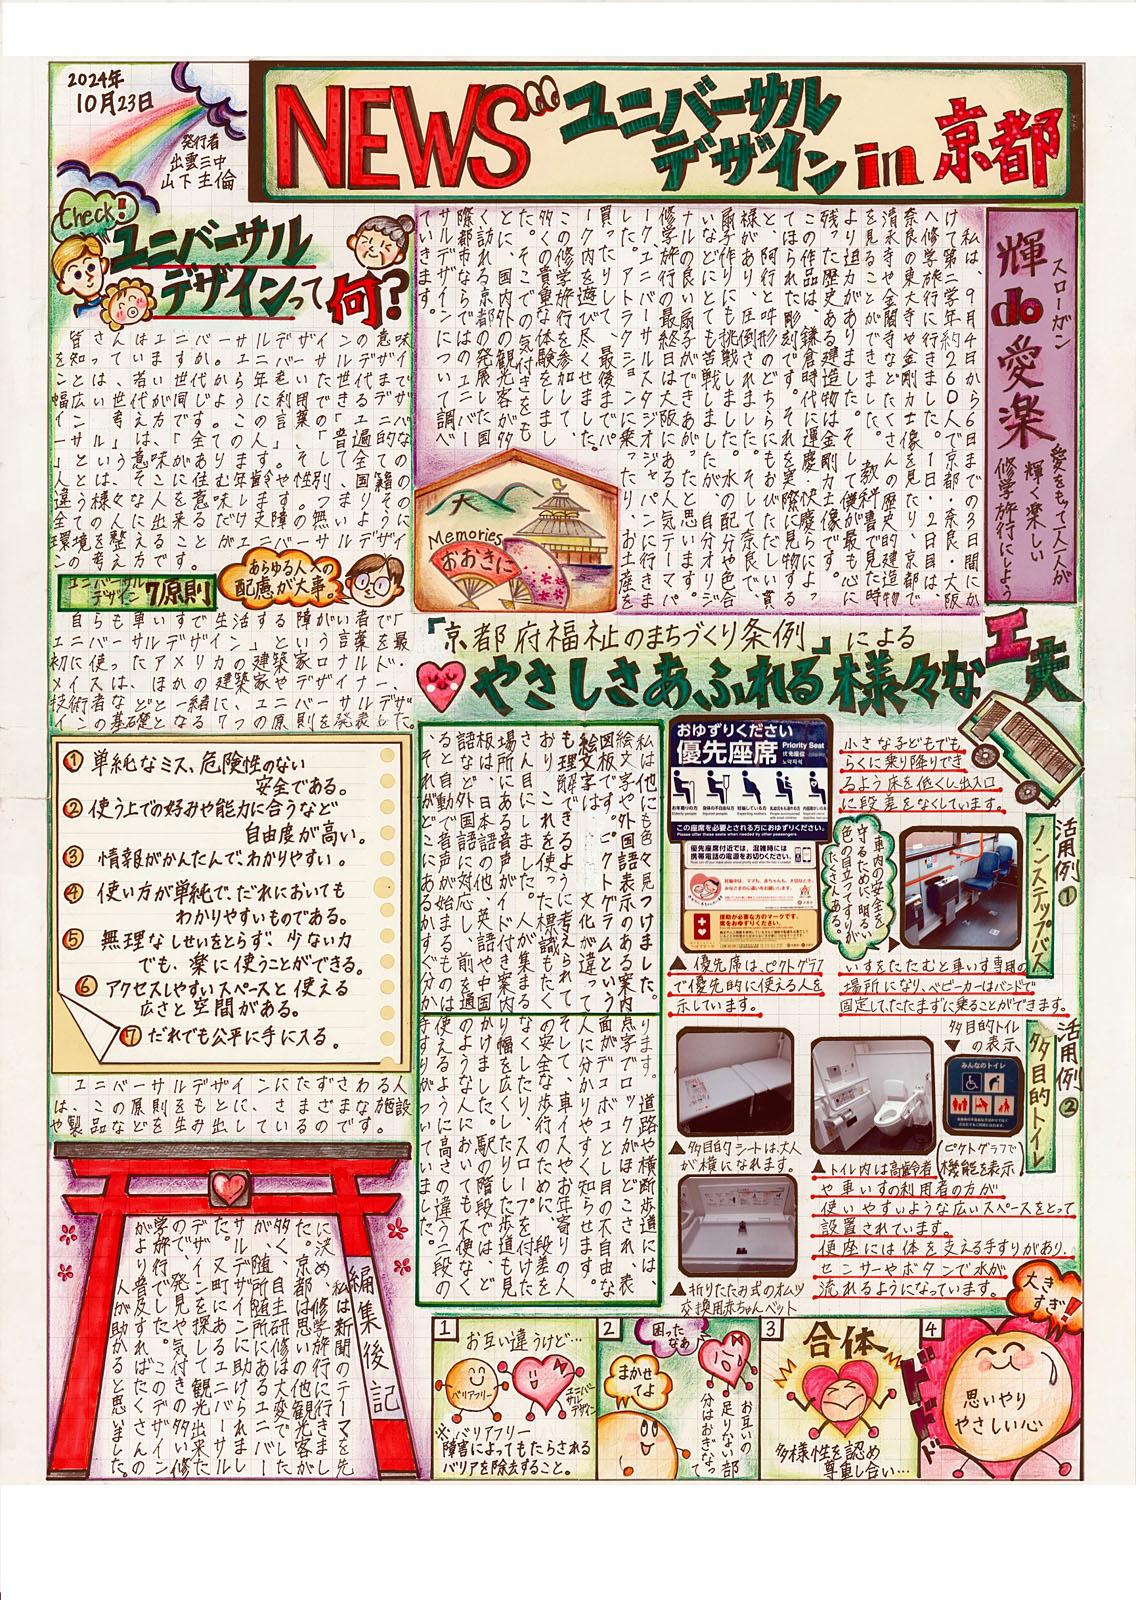 2024年
10月23日
発行者
出雲三中
山下圭倫
NEWS
ユニバーサル
デザイン in 京都
スローガン
輝do愛楽
愛をもって一人一人が
輝く楽しい
修学旅行にしよう
私は、9月4日から6日までの3日間にか
けて第二学年約260人で京都、奈良、大阪
へ修学旅行に行きました。1日、2日目は、
奈良の東大寺や金剛力士像を見たり、京都で
清水寺や金閣寺などたくさんの歴史的建造物
を見ることができました。教科書で見た時
より迫力がありました。そして僕が最も心に
残った歴史ある建造物は、金剛力士像です。
この作品は、鎌倉時代に運慶・快慶らによっ
てほられた彫刻です。それを実際に見物する
と、阿行と吽形のどちらにもおびただしい貫
禄があり、圧倒されました。そして奈良で、
扇子作りにも挑戦しました。水の配分や色合
いなどにとても苦戦しましたが、自分オリジ
ナルの良い扇子ができあがったと思います。
修学旅行の最終日は大阪にある人気テーマパ
ーク、ユニバーサルスタジオジャパンに行きま
した。アトラクションに乗ったり、お土産を
買ったりして、最後までパ
ーク内を遊び尽くせました。
この修学旅行を参加して、
多くの貴重な体験をしまし
た。そこでの気付きをも
とに、国内外の観光客が多
く訪れる京都の発展した国
際都市ならではのユニバー
サルデザインについて調べ
ていきます。
大
Memories
おおきに
Check!
ユニバーサル
デザインって何?
皆さんはユニバーサルデザインの意味
を知っていますか。ユニバーサルデザイ
ンとは、若い世代から年老いた世代まで
幅広い世代が同じように利用できるデザ
イン 考え方です。この言葉の「ユニバ
ーサル」は、「全ての人」「普遍的な
」という意味があります。そして全ての
人とは、そこに住む年齢や性別、国籍の
違う様々な人を意味します。つまりその
全ての人に出来るだけ支障の無いように
環境を整えることがユニバーサルデザイ
ンの考え方です。
あらゆる人への
配慮が大事。
ユニバーサル
デザイン 7原則
自らも車いすで生活する障がい者で「
ユニバーサルデザイン」という言葉を最
初に使ったアメリカの建築家ロナルド・
メイスは、ほかの建築家やデザイナー、
技術者などと一緒に、ユニバーサルデザ
インの基礎となる7つの原則を発表した。
① 単純なミス、危険性のない
安全である。
② 使う上での好みや能力に合うなど
自由度が高い。
③ 情報がかんたんで、わかりやすい。
④ 使い方が単純で、だれにおいても
わかりやすいものである。
⑤ 無理なしせいをとらず、少ない力
でも、楽に使うことができる。
⑥ アクセスしやすいスペースと使える
広さと空間がある。
⑦ だれでも公平に手に入る。
ユニバーサルデザインにたずさわる人
は、この原則をもとに、さまざまな施設
や製品などを生み出しているのです。
「京都府福祉のまちづくり条例」による
やさしさあふれる様々な工夫
私は他にも色々見つけました。
絵文字や外国語表示のある案内
図板です。ピクトグラムという
絵文字は、文化が違って
も理解できるように考えられて
おり、これを使った標識もたく
さん目にしました。人が集まる
場所にある音声ガイド付き案内
板は、日本語の他、英語や中国
語などの外国語に対応し、前を通
ると自動で音声が始まるものや
それがどこにあるかすぐ分かる
ります。道路や横断歩道には、
点字ブロックがほどこされ、表
面がデコボコとし目の不自由な
人に分かりやすく知らせます。
そして、車イス人やお年寄りの人
の安全な歩行のために、段差を
なくしたり、スロープを付けた
り幅を広くしたりした歩道も見
かけました。駅の階段では、ど
のような人においても不便なく
使えるように高さの違う二段の
手すりがついていました。
おゆずりください
優先座席
Priority Seat
优先座位
노약자석
お年寄りの方
身体の不自由な方
妊娠している方
乳幼児をお連れの方
内部障がいのある方
Elderly people
Injured people
Expecting mothers
この座席を必要とされる方におゆずりください。
Please offer these seats when needed by other passengers.
優先座席付近では、混雑時には
携帯電話の電源をお切りください。
援助が必要な方のマークです。
席をおゆずりください。
ヘルプマーク
▲優先席は、ピクトグラフ
で優先的に使える人を
示しています。
小さな子どもでも
らくに乗り降りでき
るよう床を低くし、出入口
に段差をなくしています。
活用例①
ノンステップバス
車内の安全を
守るために、明るい
色の目立つてすりが
たくさんある。
いすをたたむと車いす専用の
場所になり、ベビーカーはバンドで
固定してたたまずに乗ることができます。
活用例②
多目的トイレ
多目的トイレ
の表示、▼
みんなのトイレ
(ピクトグラフで
機能を表示)
▲多目的シートは大人
が横になれます。
▲トイレ内は高齢者
や車いすの利用者の方が
使いやすいような広いスペースをとって
設置されています。
便座には体を支える手すりがあり、
センサーやボタンで水が
流れるようになっています。
▲折りたたみ式のオムツ
交換用赤ちゃんベット
編集後記
私は新聞のテーマを先
に決め、修学旅行に行きまし
た。京都は思いの他観光客が
多く、自主研修は大変でした
が、随所随所にあるユニバー
サルデザインに助けられまし
た。又町にあるユニバーサル
デザインを探して観光出来た
ので、発見や気付きの多い修
学旅行でした。このデザイン
がより普及すればたくさんの
人が助かると思いました。
1
お互い違うけど…
バリアフリー
ユニバーサルデザイン
※バリアフリー
障害によってもたらされる
バリアを除去すること。
2
困ったなあ
まかせてよ
お互いの
足りない部
分はおぎなって
3
合体
多様性を認め
尊重し合い…
4
大きすぎ!
ドドド
思いやり
やさしい心